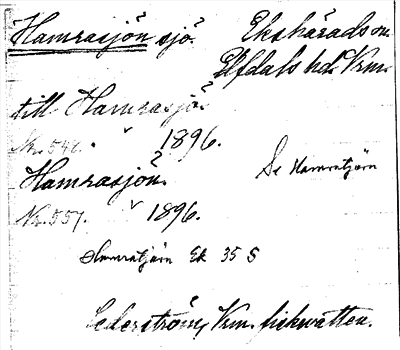 Hamrasjön sjö. Ekshärads sn.
Elfdals hd. Vrm.
till Hamrasjö.
Nr. 542. " 1896.
Se Hamratjärn
Hamrasjön.
Nr. 557. " 1896.
Hamratjärn Ek 35 S
Cederström, Vrm. fiskvatten.